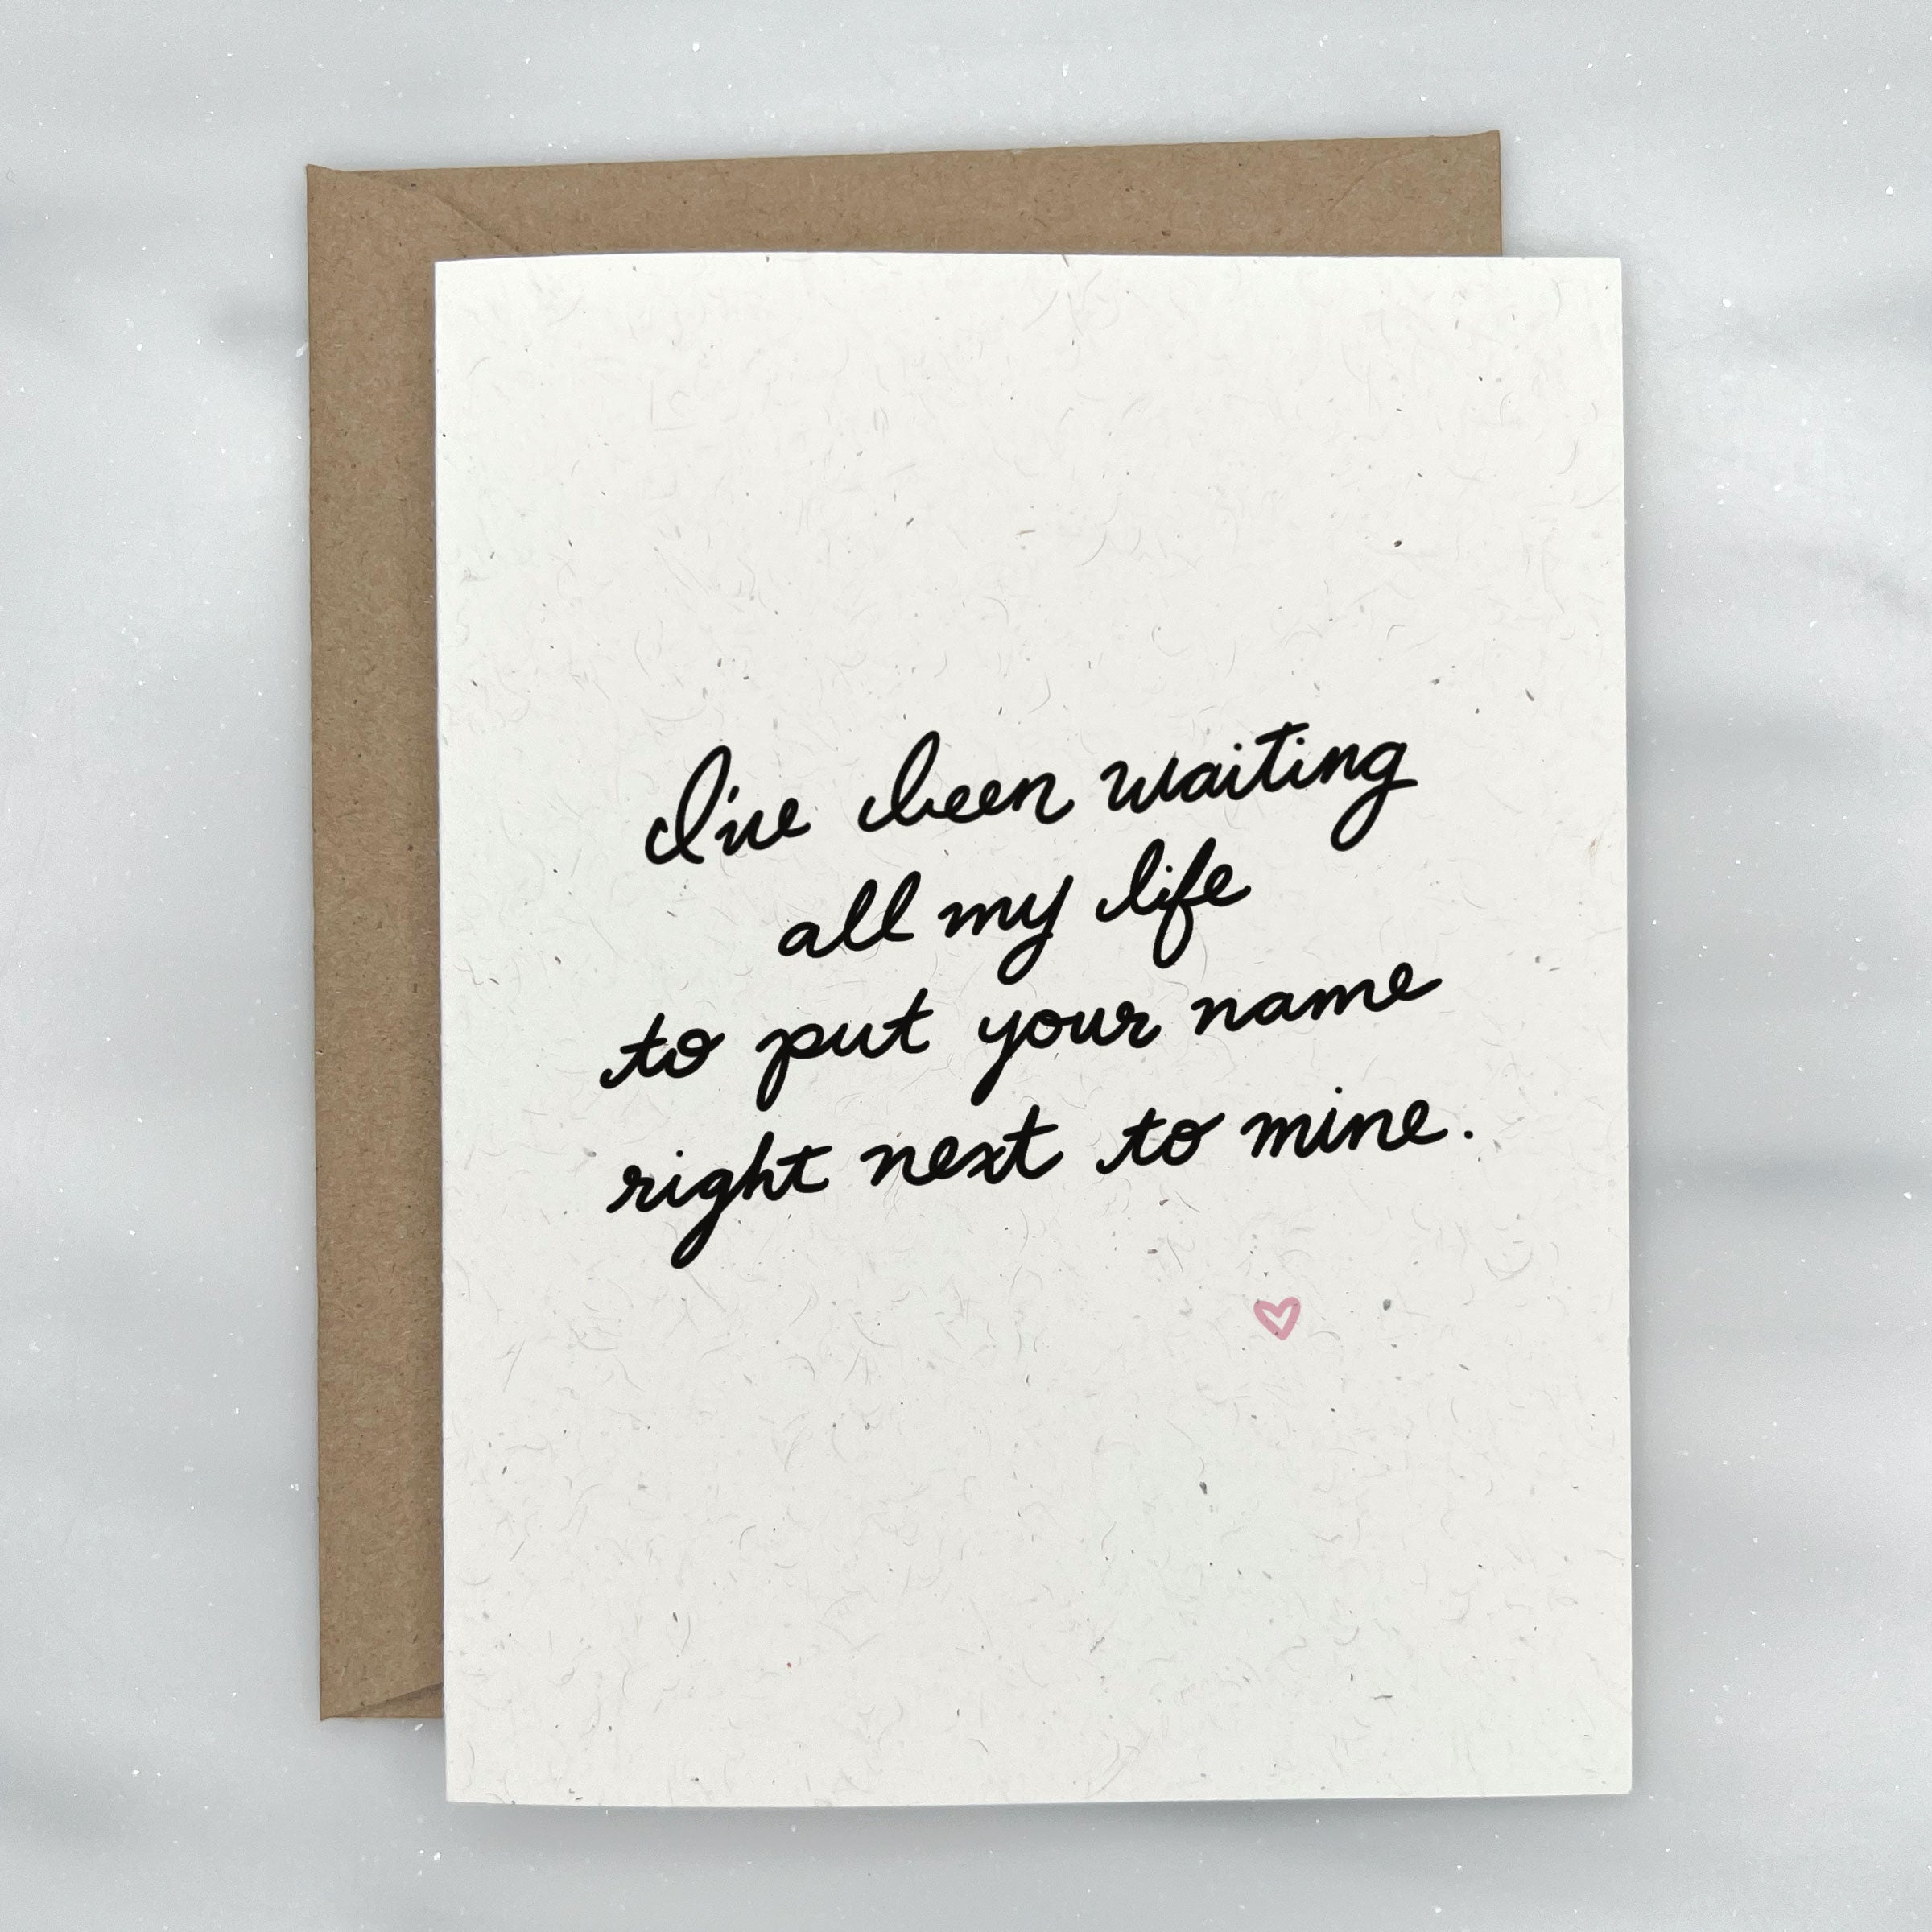 I've been waiting
all my life
to put your name
right next to mine.